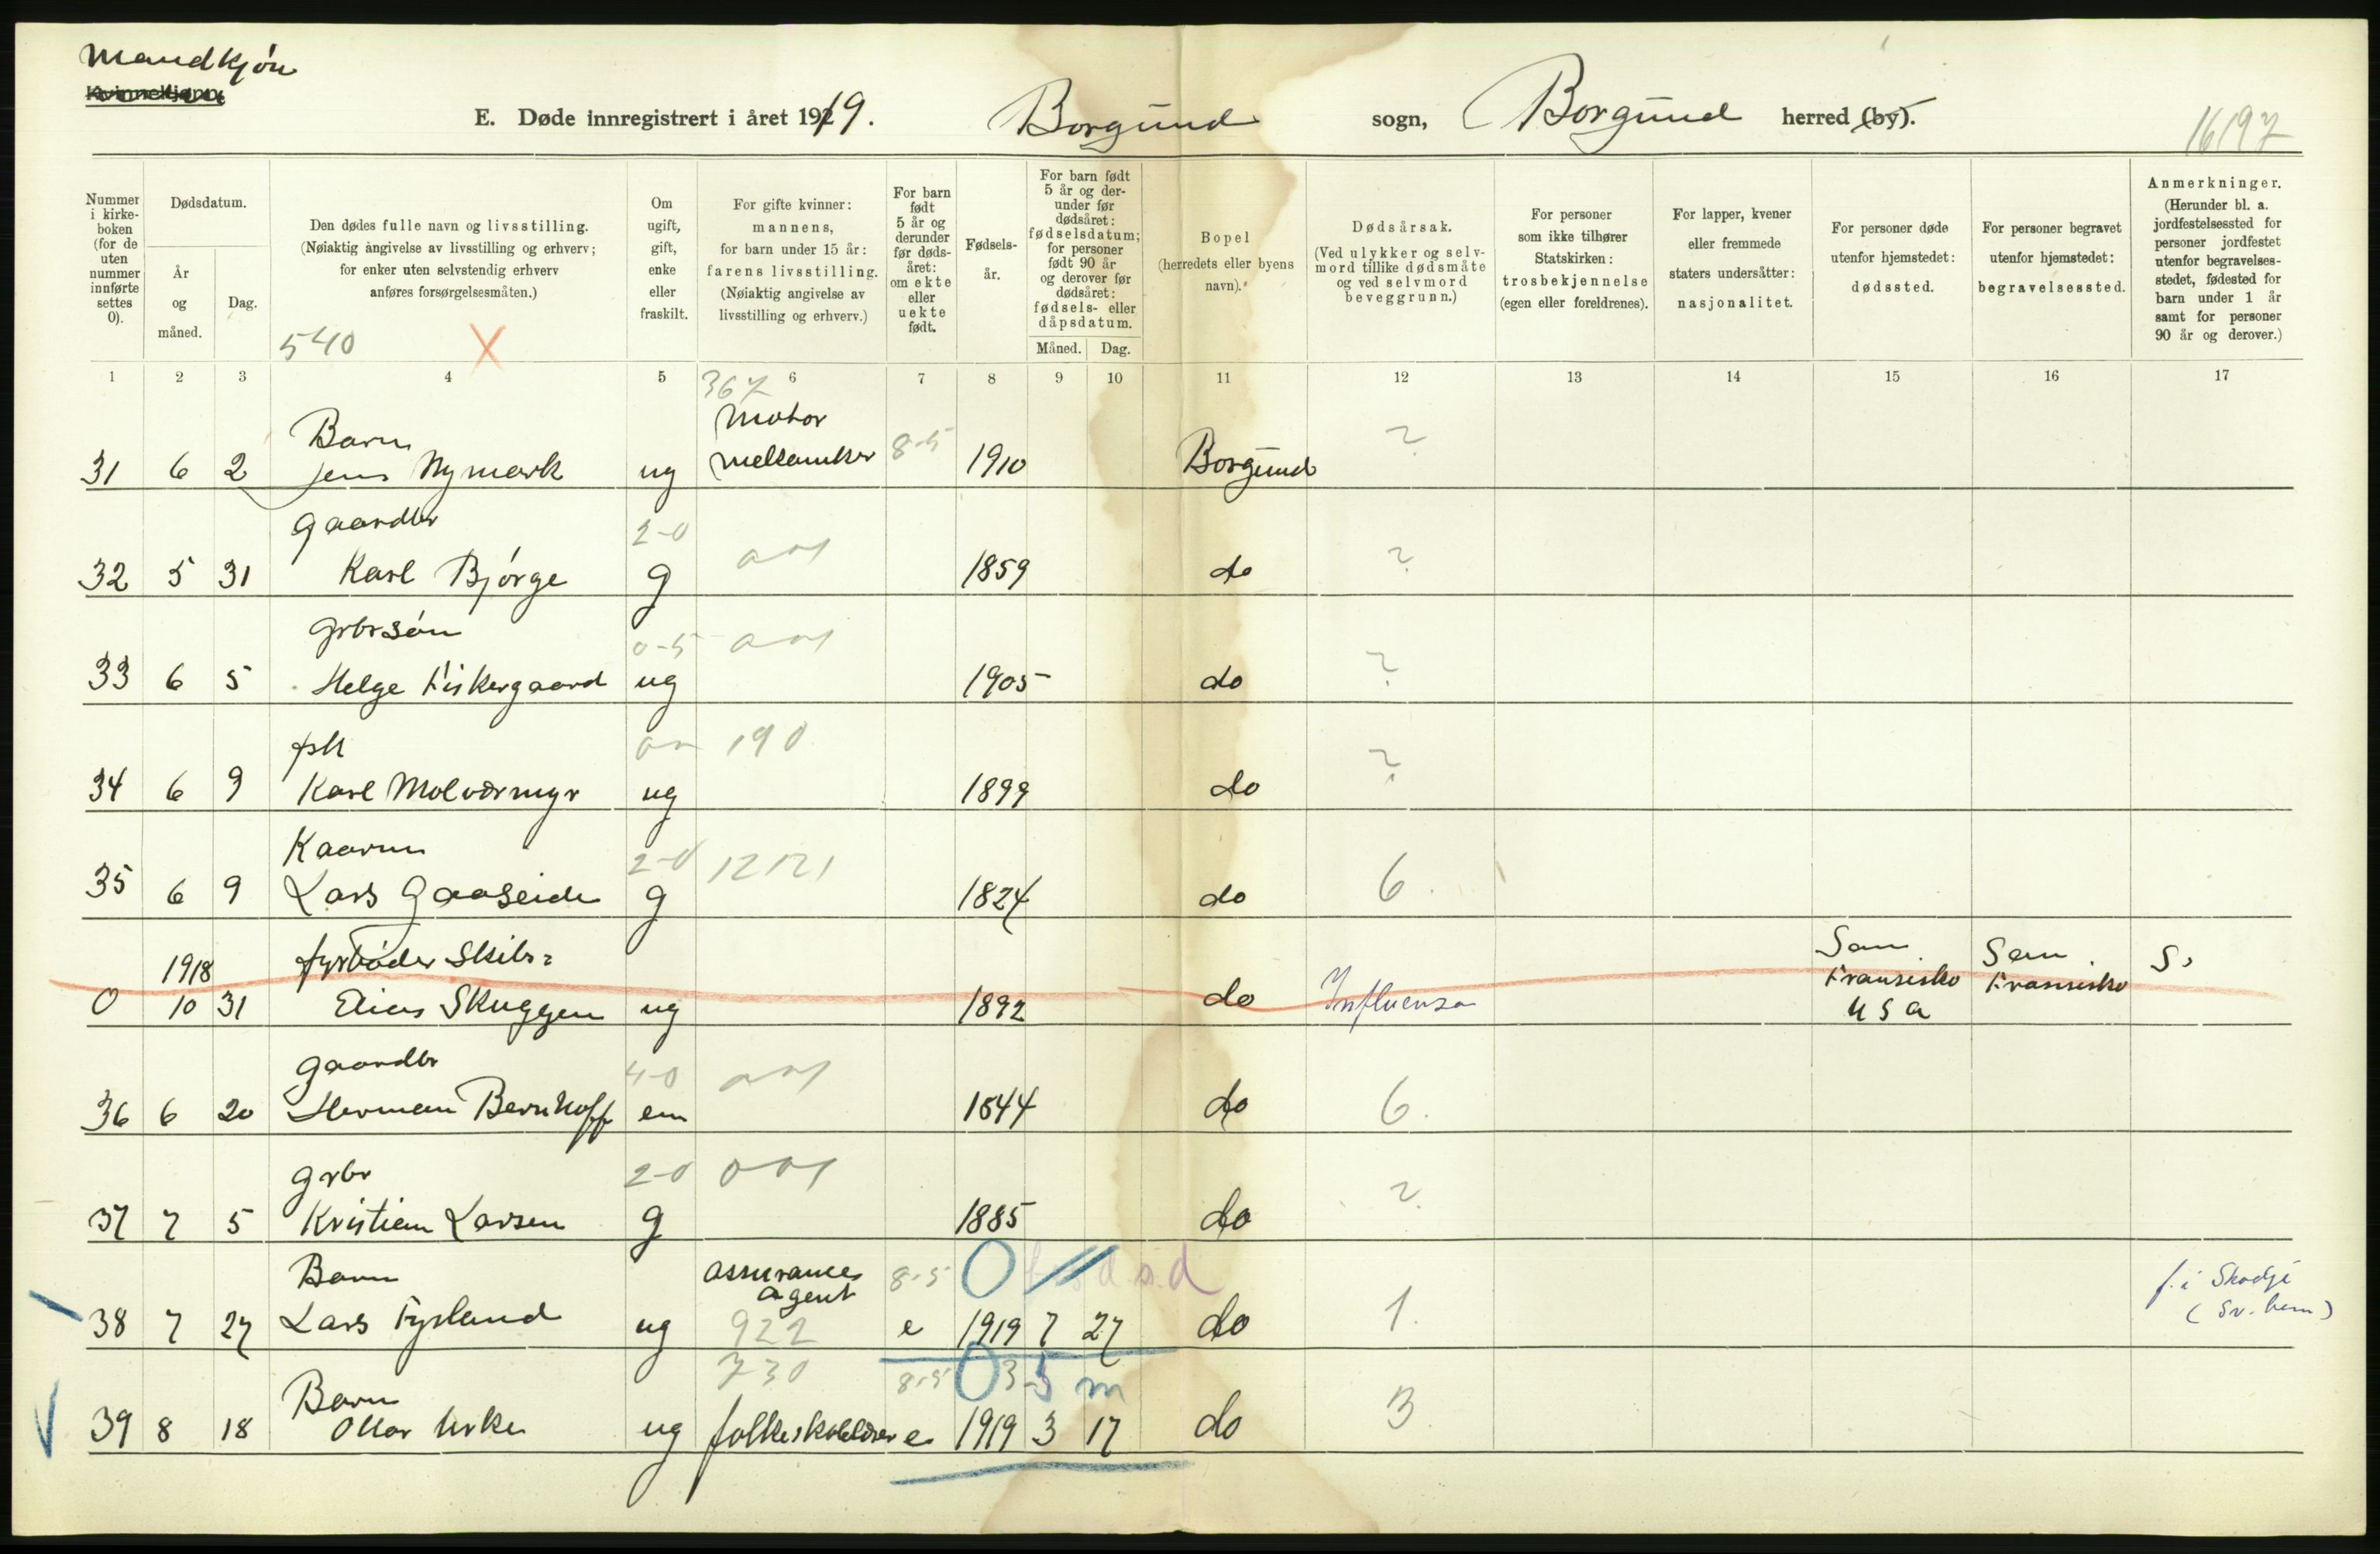 Mandkjøn
Kvinnekjønn.
E. Døde innregistrert i året 1919.
Borgund sogn, Borgund herred (by).
16197
Nummer i kirke-boken (for de uten nummer innførte settes 0).
Dødsdatum.
År og måned.
Dag.
Den dødes fulle navn og livsstilling.
(Nøiaktig angivelse av livsstilling og erhverv;
for enker uten selvstendig erhverv
anføres forsørgelsesmåten.)
540 X
Om ugift, gift, enke eller fraskilt.
For gifte kvinner:
mannens,
for barn under 15 år:
farens livsstilling.
(Nøiaktig angivelse av
livsstilling og erhverv.)
For barn født 5 år og derunder før døds-året: om ekte eller uekte født.
Fødsels-år.
For barn født 5 år og der-under før dødsåret: fødselsdatum; for personer født 90 år og derover før dødsåret: fødsels- eller dåpsdatum.
Måned. Dag.
Bopel
(herredets eller byens navn).
Dødsårsak.
(Ved ulykker og selv-mord tillike dødsmåte og ved selvmord beveggrunn.)
For personer som ikke tilhører Statskirken: trosbekjennelse (egen eller foreldrenes).
For lapper, kvener eller fremmede staters undersåtter: nasjonalitet.
For personer døde utenfor hjemstedet: dødssted.
For personer begravet utenfor hjemstedet: begravelsessted.
Anmerkninger.
(Herunder bl. a. jordfestelsessted for personer jordfestet utenfor begravelses-stedet, fødested for barn under 1 år samt for personer 90 år og derover.)
1 2 3 4 5 6 7 8 9 10 11 12 13 14 15 16 17
367
Barn Motor
31 6 2 Jens Nymark ug mekaniker 8-5 1910 Borgund ?
Gaardbr 2-0
32 5 31 Karl Bjørge g 1859 do ?
Grbrsøn 0-5
33 6 5 Helge Fiskergaard ug 1905 do ?
fsk 190
34 6 9 Karl Molværmyr ug 1899 do ?
Kaarm 2-0 12121
35 6 9 Lars Gaaseide g 1824 do 6.
1918 fyrbøder Skibs= San San S.
0 10 31 Elias Skuggen ug 1892 do Influensa Fransisko Fransisko
USA
Gaardbr 4-0
36 6 20 Herman Bernhoff em 1844 do 6.
Grbr 2-0
37 7 5 Kristian Larsen g 1885 do ?
Barn assurance agent 8-5 0 f. i Skodje
38 7 27 Lars Fysland ug 922 e 1919 7 27 do 1. (Sv. hem)
730 8-5 0 3-5 m
Barn
39 8 18 Ottar Urke ug folkeskolelærer e 1919 3 17 do 3